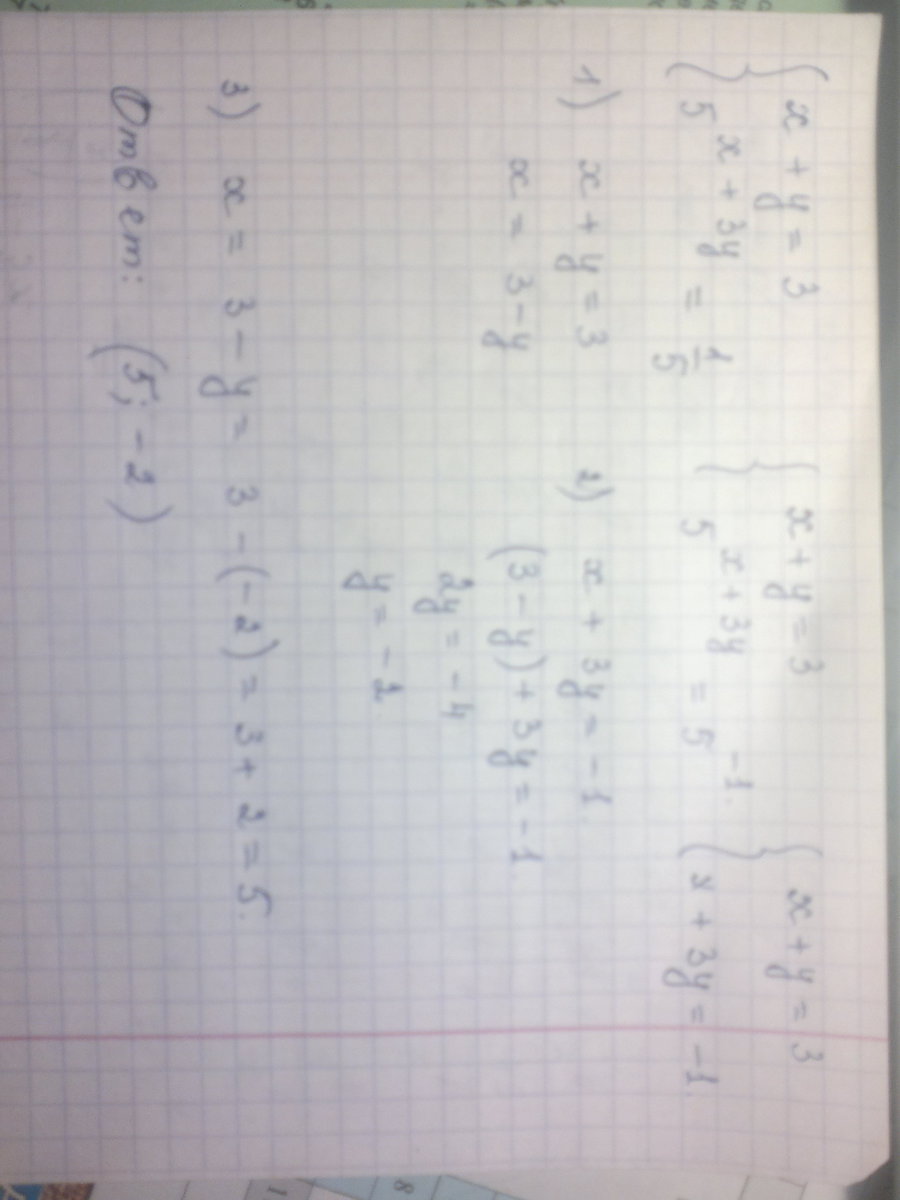 { x + y = 3
{ 5^(x + 3y) = 1/5
{ x + y = 3
{ 5^(x + 3y) = 5^(-1).
{ x + y = 3
{ x + 3y = -1.
1) x + y = 3
x = 3 - y
2) x + 3y = -1.
(3 - y) + 3y = -1.
2y = -4
y = -2.
3) x = 3 - y = 3 - (-2) = 3 + 2 = 5.
Ответ: (5; -2)